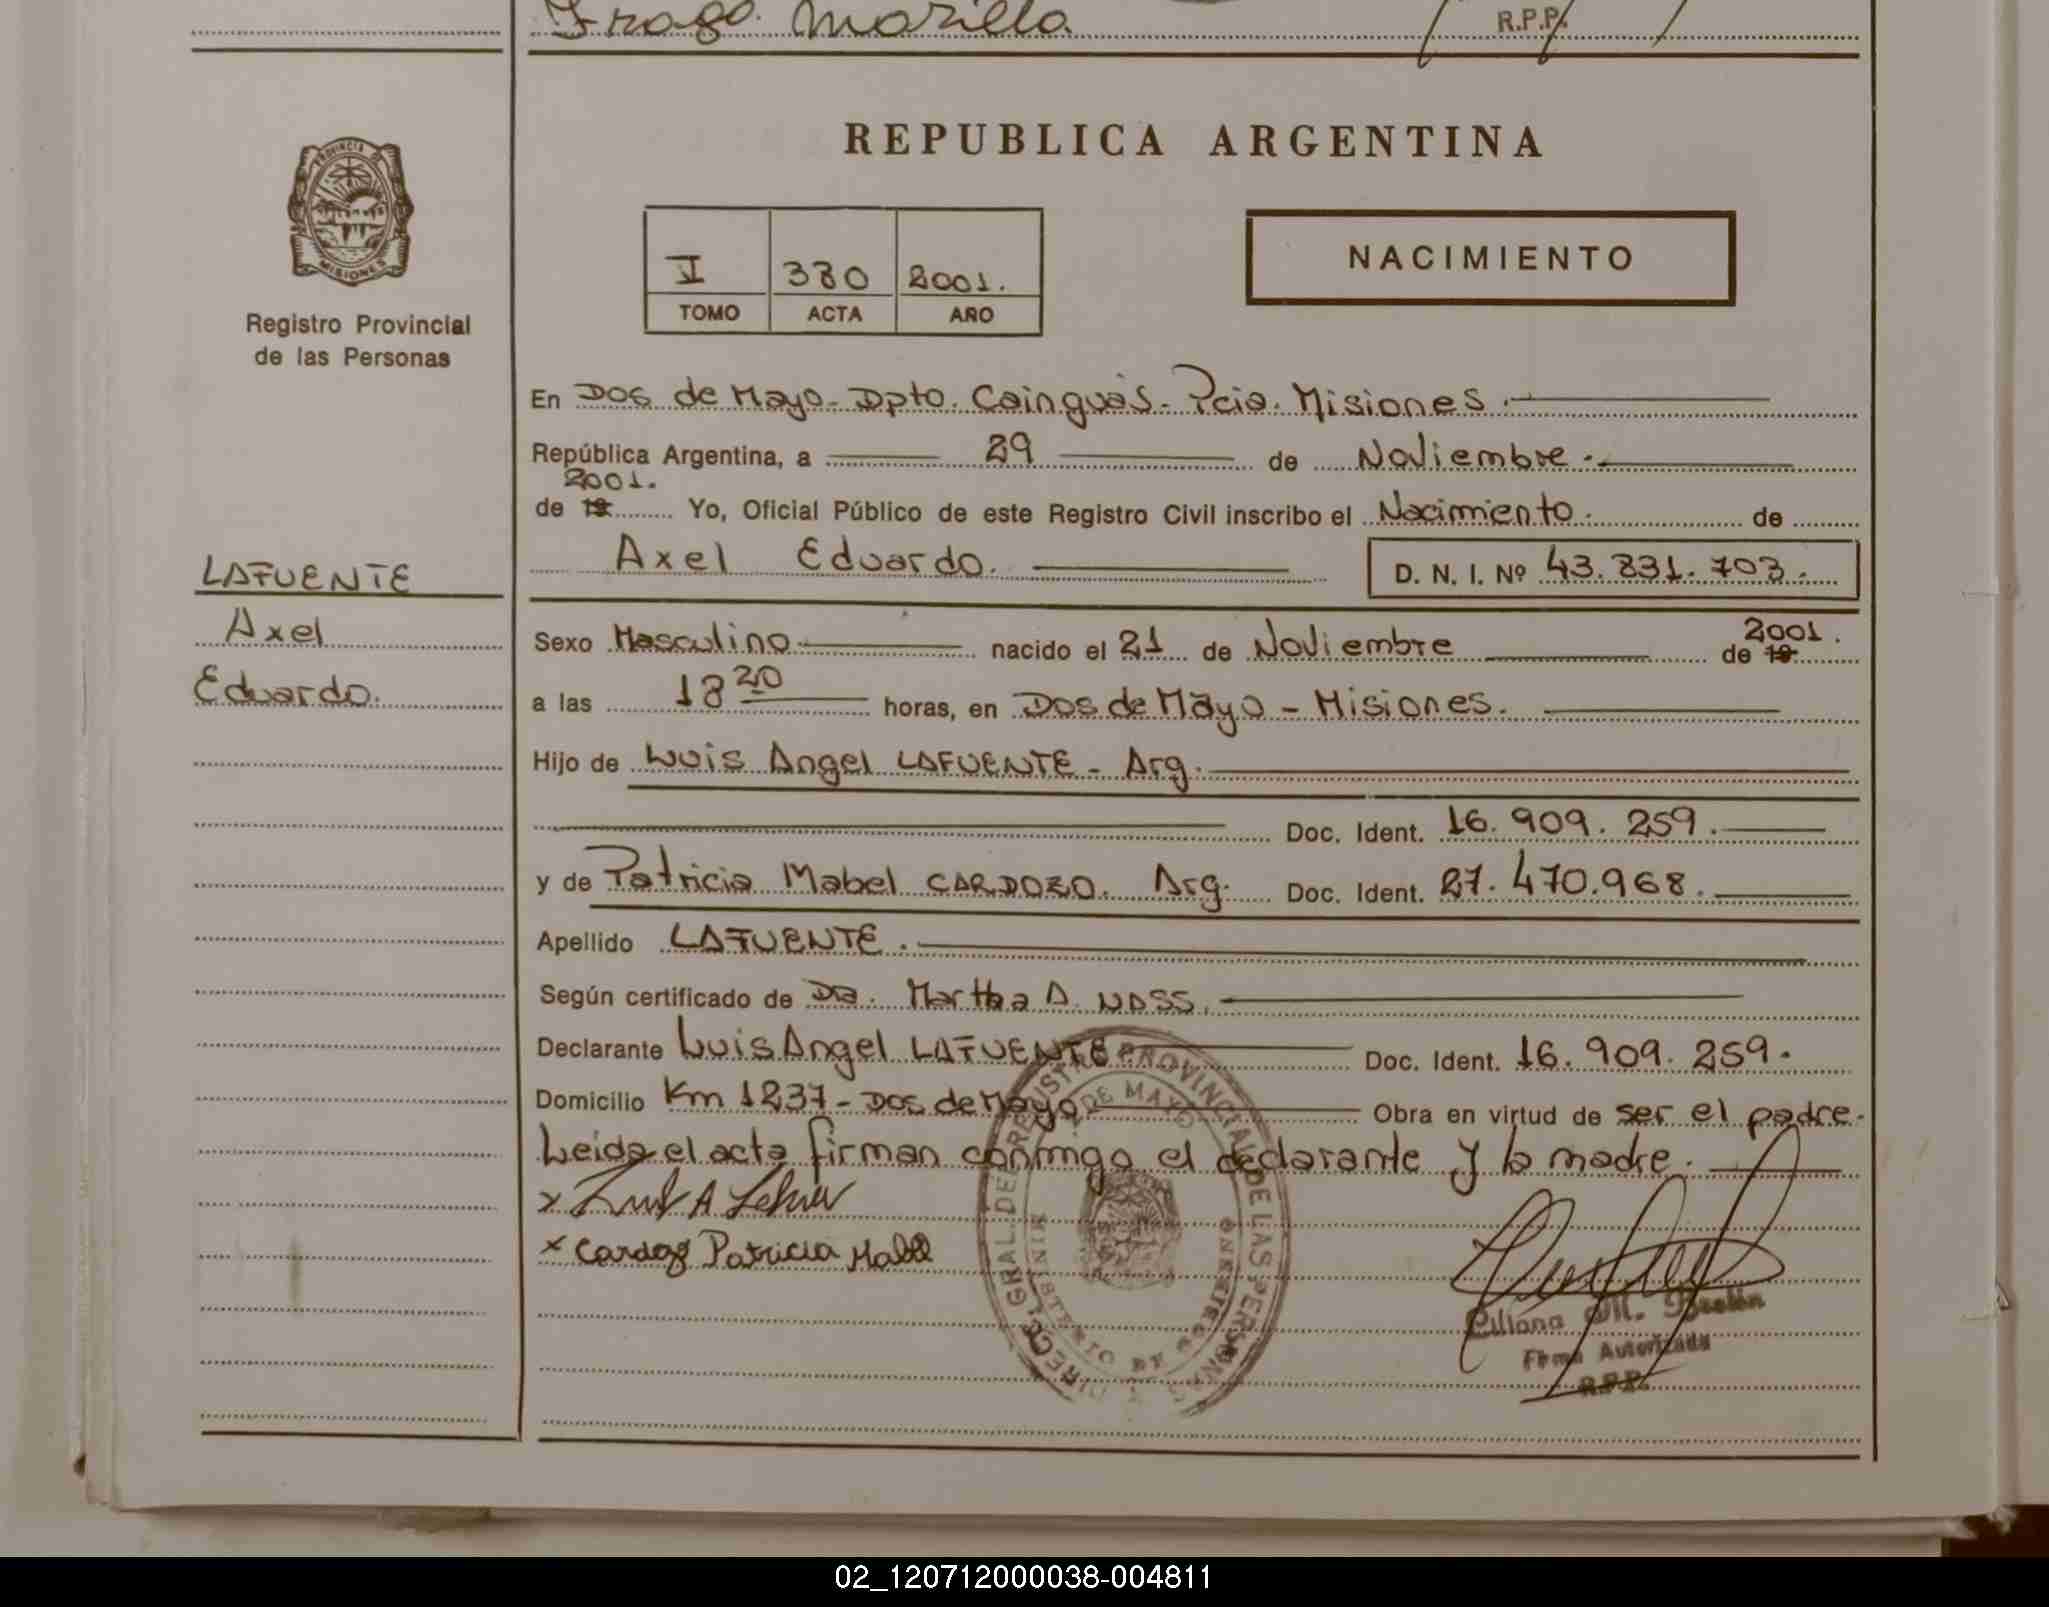 Frago. Morilla
R.P.P.
PROVINCIA DE
MISIONES
Registro Provincial
de las Personas
REPUBLICA ARGENTINA
I 380 2001.
TOMO ACTA AÑO
NACIMIENTO
En Dos de Mayo - Dpto. Cainguás - Pcia. Misiones.
República Argentina, a 29 de Noviembre.
2001.
de 19 Yo, Oficial Público de este Registro Civil inscribo el Nacimiento. de
Axel Eduardo. D. N. I. Nº 43.831.703.
LAFUENTE
Axel
Eduardo.
Sexo Masculino nacido el 21 de Noviembre de 19 2001.
a las 18 20 horas, en Dos de Mayo - Misiones.
Hijo de Luis Angel LAFUENTE - Arg.
Doc. Ident. 16.909.259.
y de Patricia Mabel CARDOZO. Arg. Doc. Ident. 27.470.968.
Apellido LAFUENTE.
Según certificado de Dra. Martha A. NASS.
Declarante Luis Angel LAFUENTE Doc. Ident. 16.909.259.
Domicilio Km 1237 - Dos de Mayo Obra en virtud de ser el padre.
Leida el acta firman conmigo el declarante y la madre.
x Luis A Lafuente
x Cardozo Patricia Mabel
DIREC. GRAL. DE REGISTRO PROVINCIAL DE LAS PERSONAS
2 DE MAYO
MINISTERIO DE GOBIERNO
Liliana M.
Firma Autorizada
R.P.P.
02_120712000038-004811